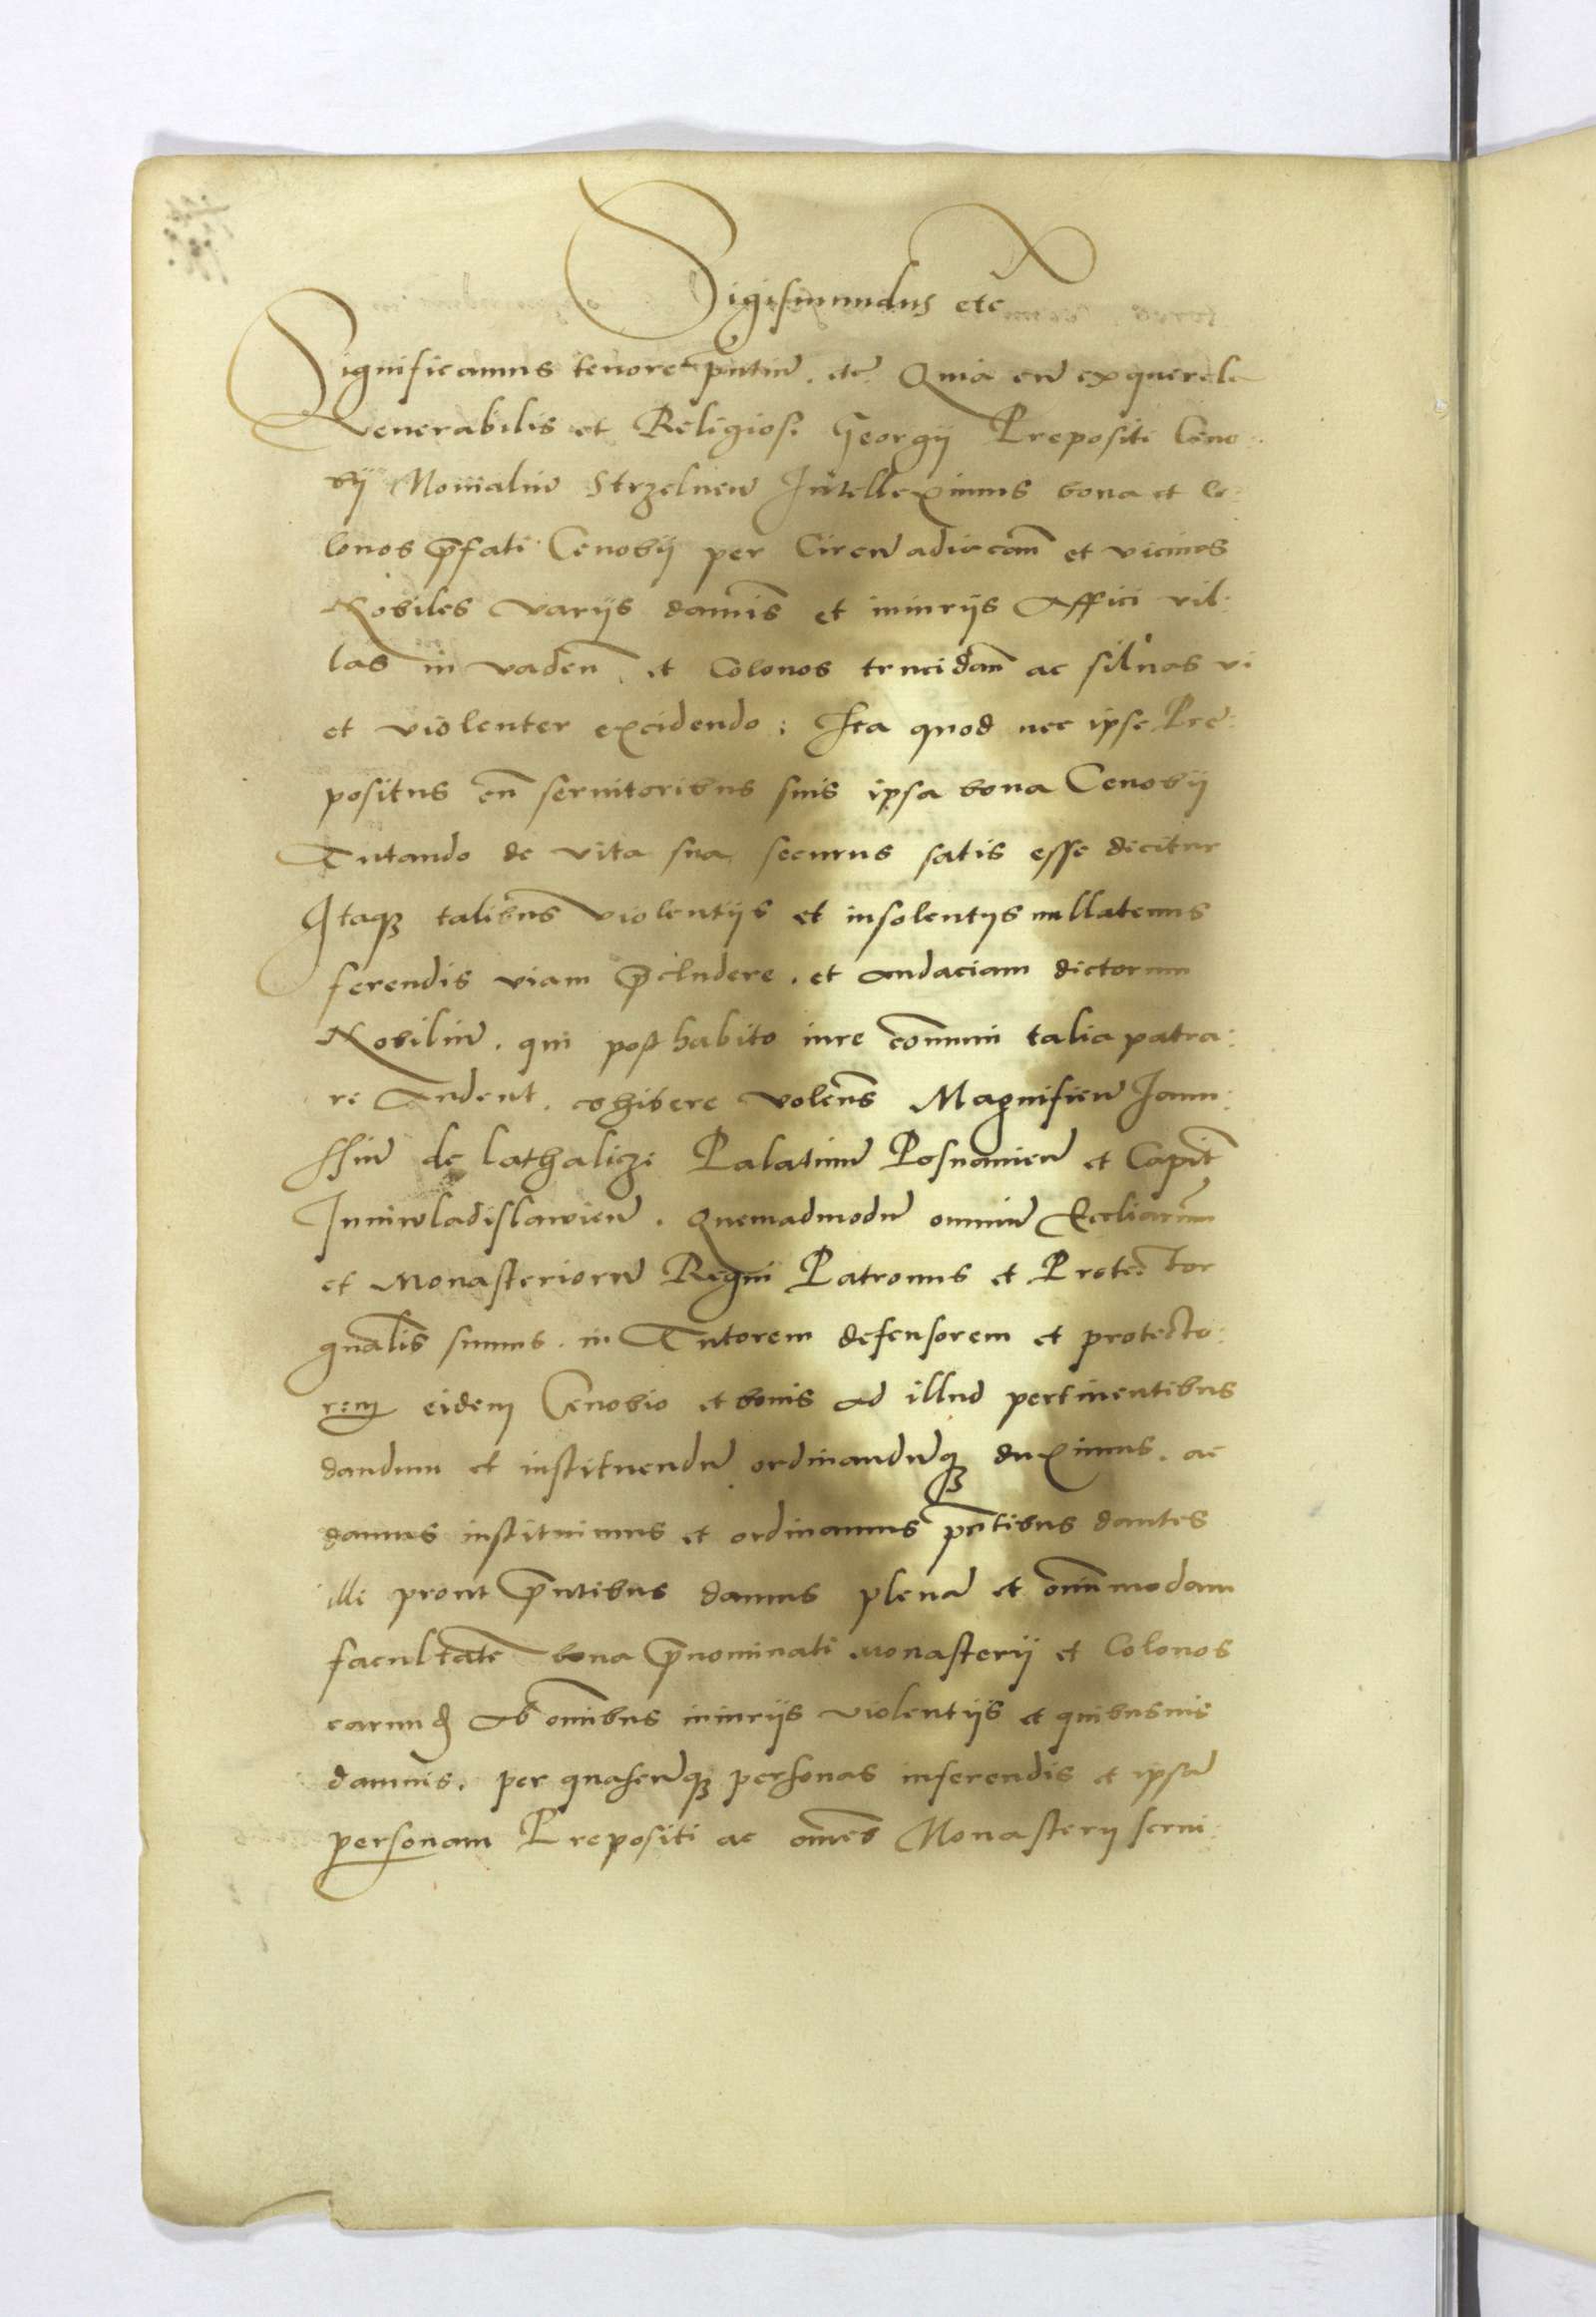 Sigismundus etc
Significamus tenore pntiū. etc. Quia cū ex querela
Venerabilis et Religiosi Georgij Prepositi Ceno:
bij Monialiū Strzelneñ Intelleximus bona et Co:
lonos p̄fati Cenobij per Circū adiaceñ et vicinos
Nobiles varijs damnis et iniurijs Affici vil:
las in vadeñ et Colonos trucidañ ac siluas vi
et violenter excidendo: Ita quod nec ipse Pre:
positus cū seruitoribus suis ipsa bona Cenobij
Tutando de vita sua securus satis esse dicitur
Itaqȝ talibus violentijs et insolentijs nullatenus
ferendis viam p̄cludere. et audaciam dictorum
Nobiliū. qui post habito iure cōmuni talia patra:
re Audent. cohibere volens Magnificū Ianu:
ssiū de Lathalicze Palatinū Posnanieñ et Capit̄
Iuniwladislawieñ. Quemadmodū omniū Eccliarum
et Monasteriorū Regni Patronus et Protector
gnalis sumus. in Tutorem defensorem et protecto:
rem eidem Cenobio et bonis ad illud pertinentibus
dandum et instituendū ordinandūqȝ duximus. ac
damus instituimus et ordinamus pn̄tibus dantes
illi prout p̄ntibus damus plenā et omnimodam
facultatē bona p̄nominati Monasterij et Colonos
earund ab om̄ibus iniurijs violentijs et quibusuis
damnis. per quascūqȝ personas inferendis et ipsā
personam Prepositi ac om̄es Monasterij serui: